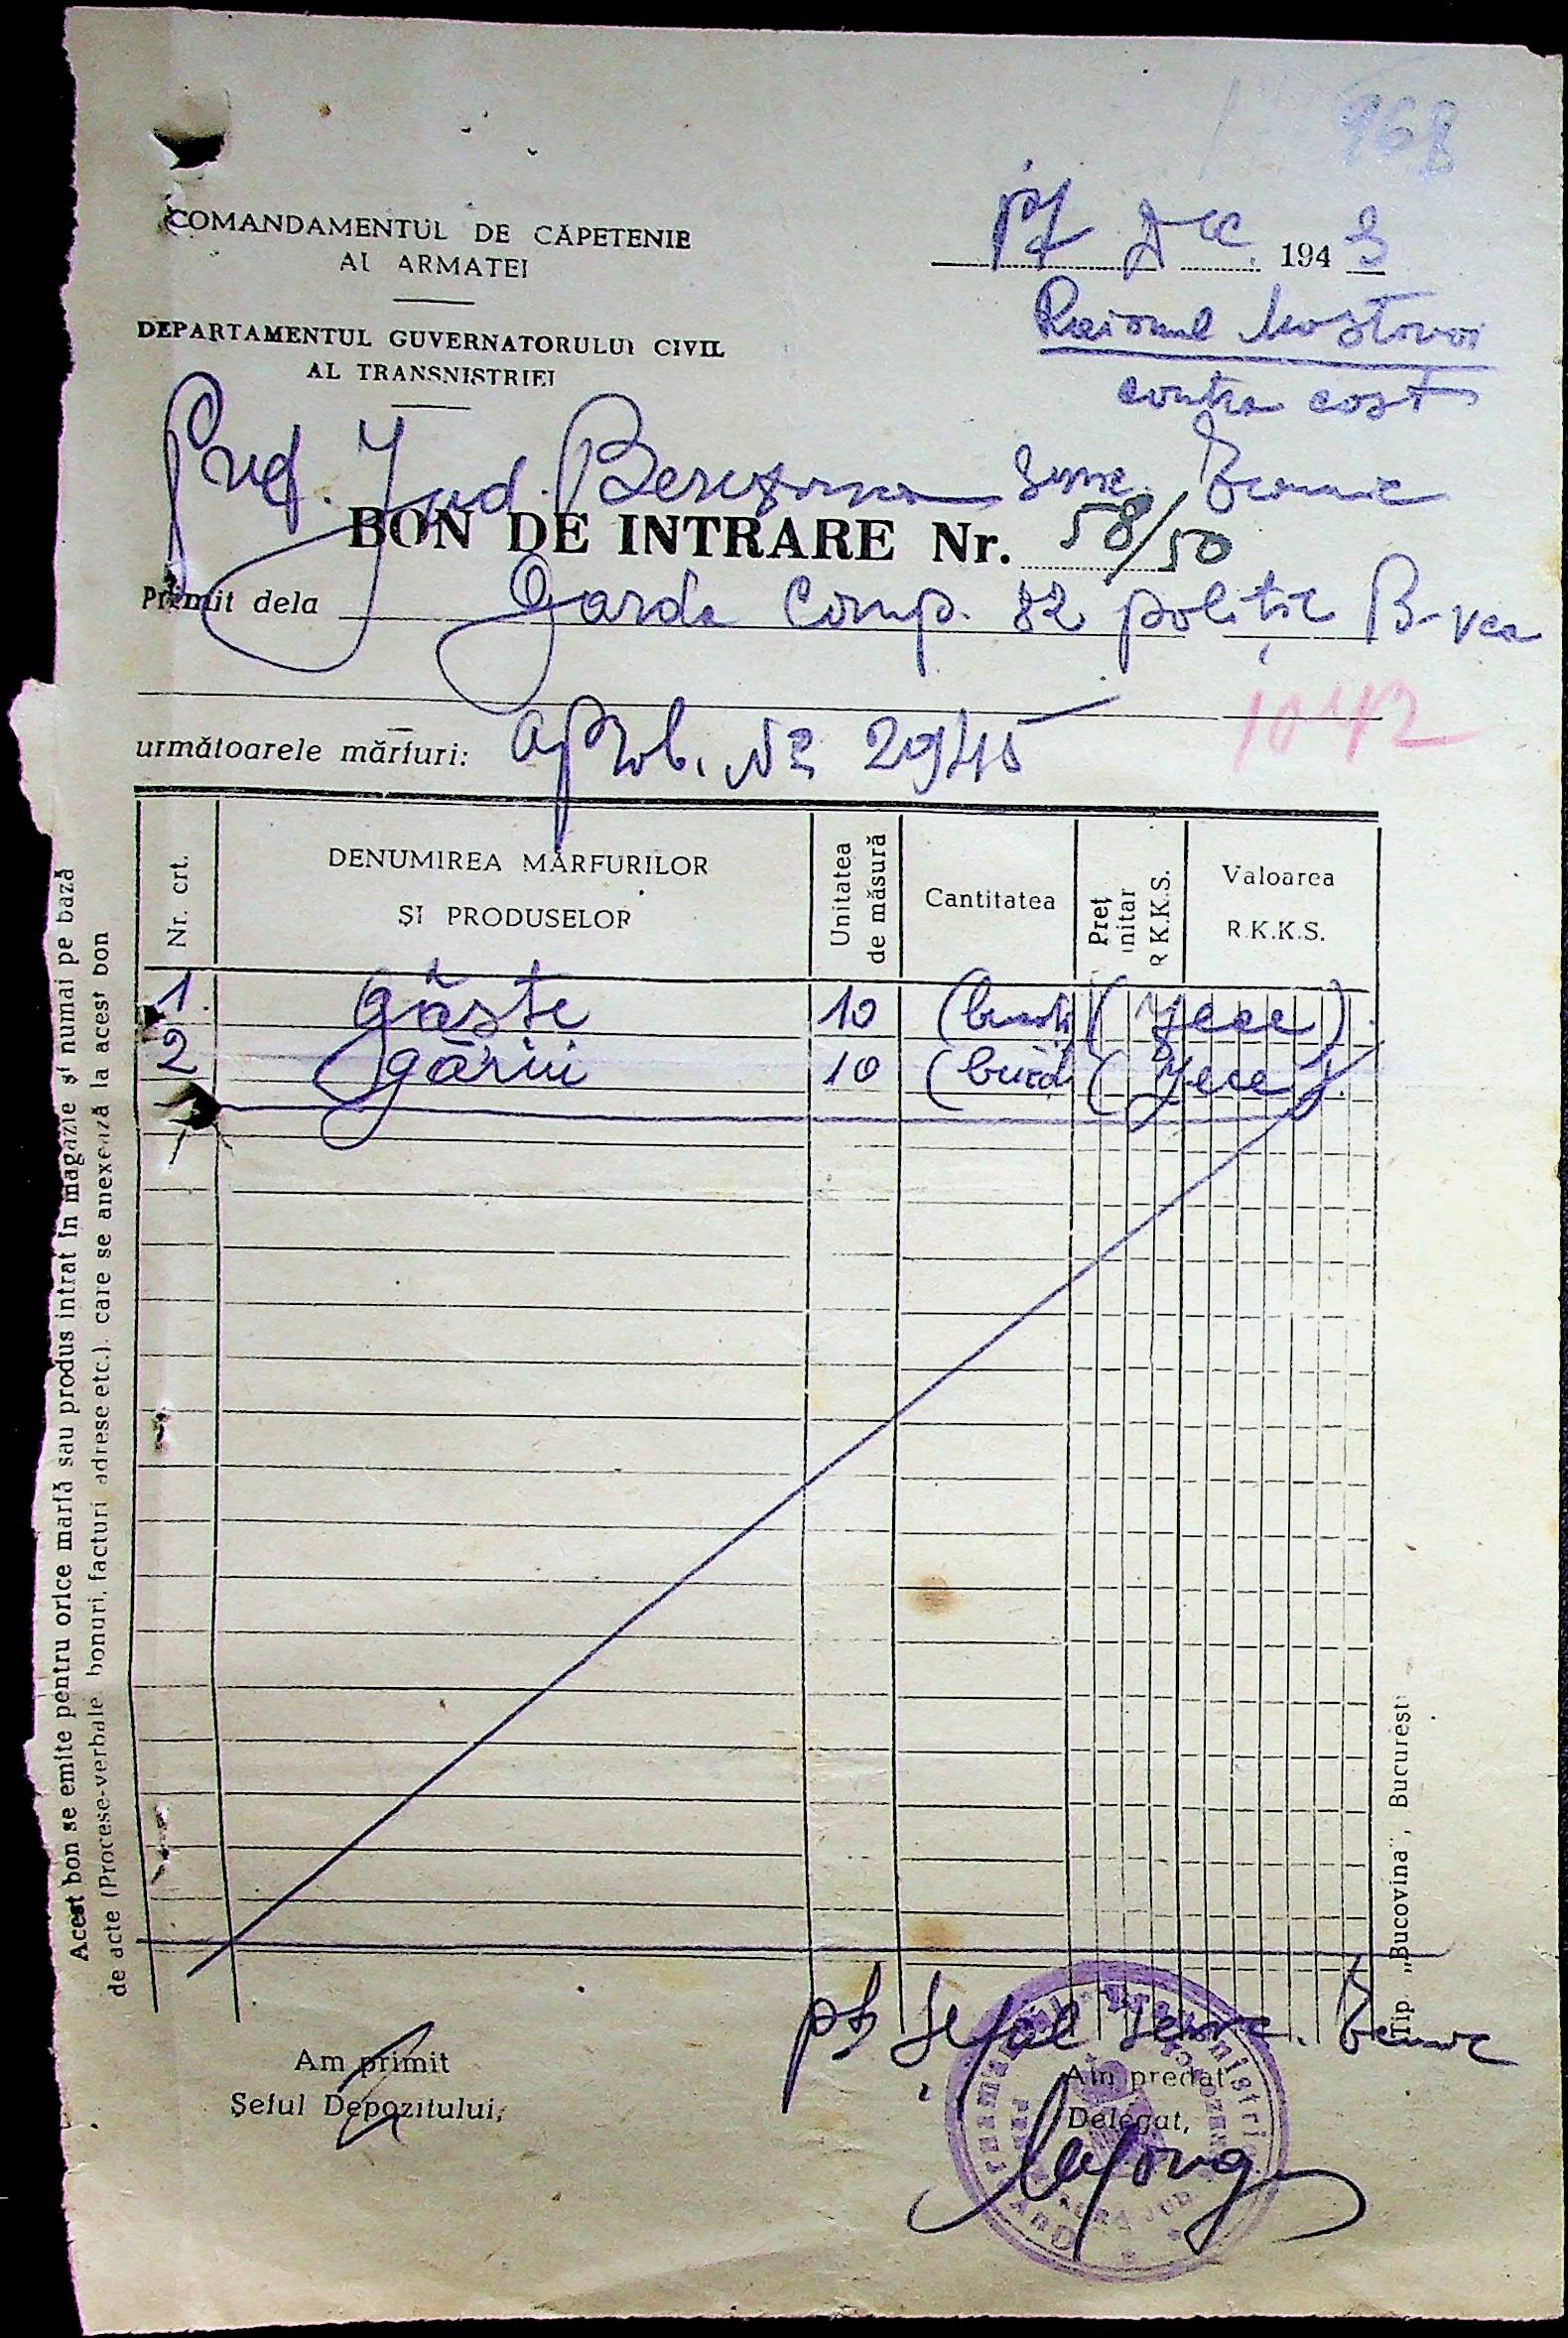 968
COMANDAMENTUL DE CĂPETENIE
AL ARMATEI
17 Dec. 1943
DEPARTAMENTUL GUVERNATORULUI CIVIL
AL TRANSNISTRIEI
Raionul Mostovoi
contra cost
Pref. Jud. Berezovca Serv. Econmic
BON DE INTRARE Nr. 58/50
Primit dela Garda Comp. 82 politie B-vca
1042
următoarele mărfuri: aprob. No 2945
Nr. crt.
DENUMIREA MĂRFURILOR
ȘI PRODUSELOR
Unitatea
de măsură
Cantitatea
Preț
unitar
R.K.K.S.
Valoarea
R.K.K.S.
1. Găște 10 (bucăți) (zece)
2 găini 10 (bucăți) (zece)
Acest bon se emite pentru orice marfă sau produs intrat în magazie și numai pe bază
de acte (Procese-verbale bonuri, facturi adrese etc.). care se anexează la acest bon
Tip. „Bucovina", București
pt Șeful Serv. Econmic
Am primit
Șeful Depozitului,
Am predat
Delegat,